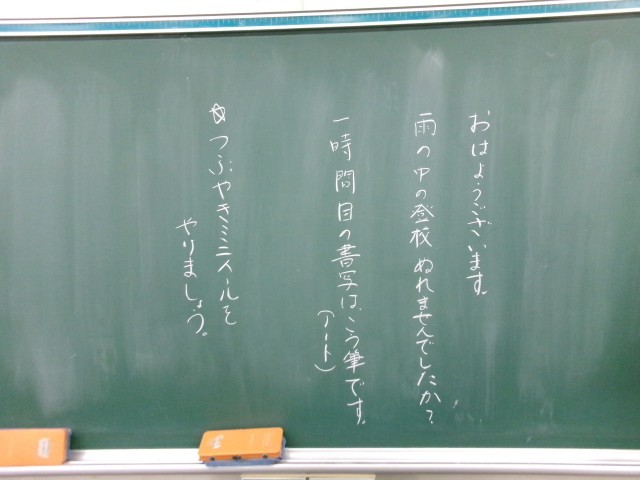 おはようございます。
雨の中の登校ぬれませんでしたか?
一時間目の書写は、こう筆です。
(ノート)
☆つぶやきミニミニルールを
やりましょう。